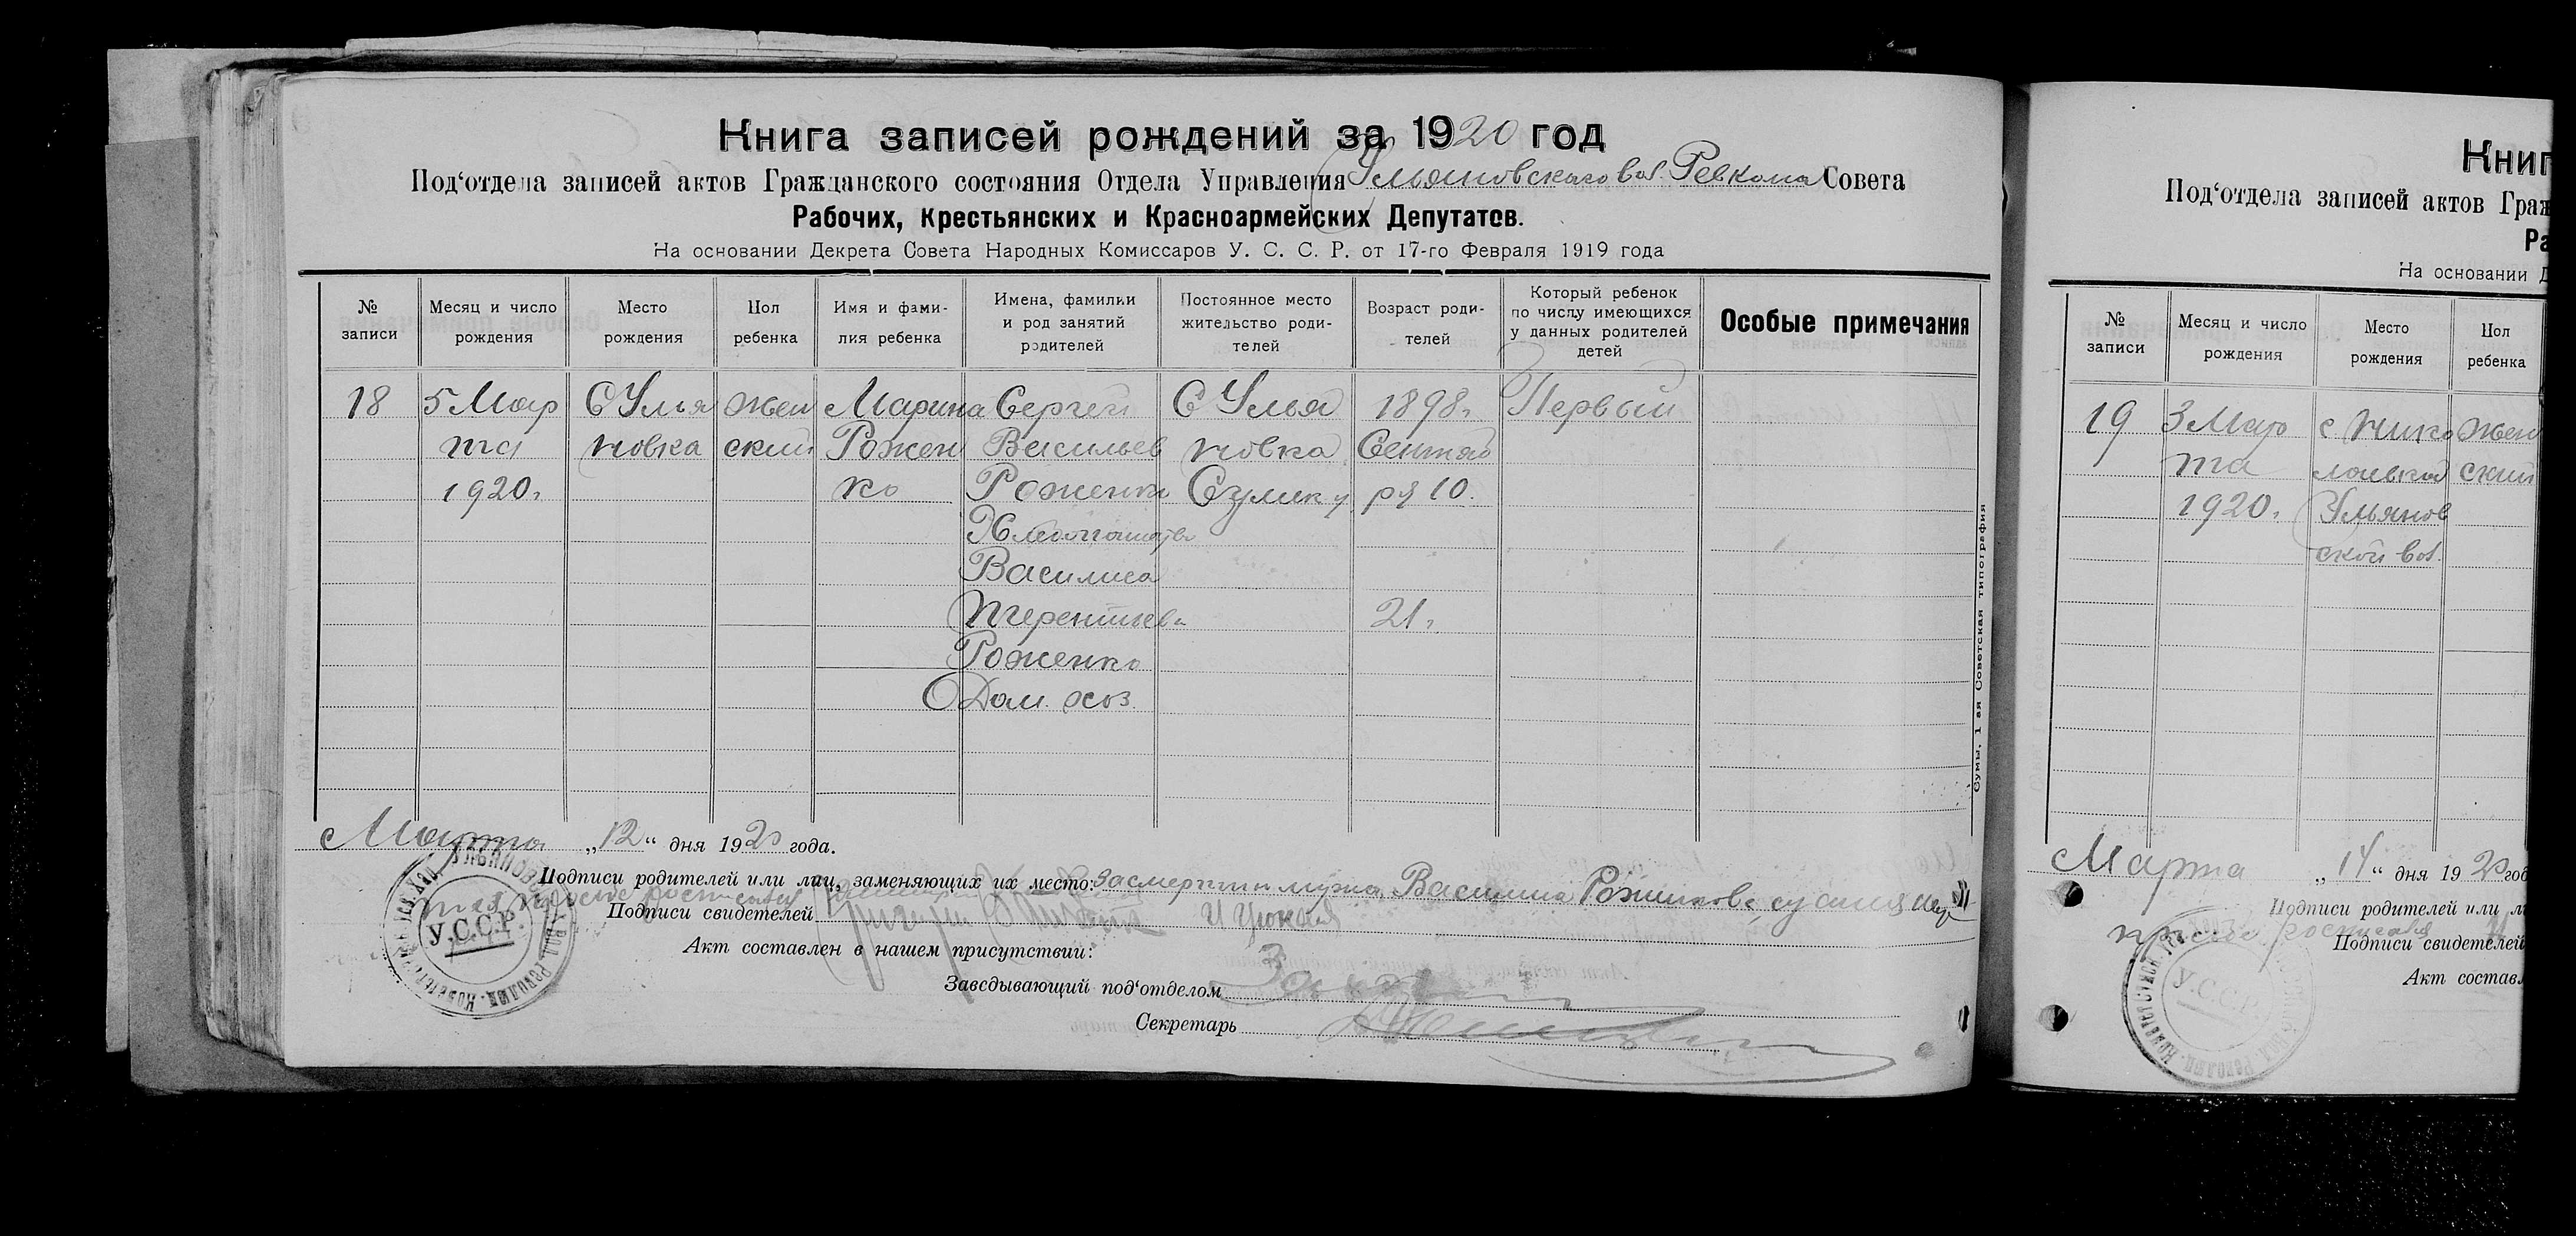 Книга записей рождений за 1920 год
Под‘отдела записей актов Гражданского состояния Отдела Управления Ульяновского вол. Ревкома Совета
Рабочих, Крестьянских и Красноармейских Депутатов.
На основании Декрета Совета Народных Комиссаров У. С. С. Р. от 17-го Февраля 1919 года
№ записи
Месяц и число рождения
Место рождения
Пол ребенка
Имя и фами-
лия ребенка
Имена, фамилии
и род занятий
родителей
Постоянное место
жительство роди-
телей
Возраст роди-
телей
Который ребенок
по числу имеющихся
у данных родителей
детей
Особые примечания
18 5 Мар С Улья жен Марина Сергей С Улья 1898, Первый
та новка ский Рожен Васильев новка Сентяб
1920, ко Роженко Сумск у ря 10.
Хлебопашство
Василиса
Терентьева 21,
Роженко
Дом. хоз
Сумы, 1 ая Советская типография
Марта „12“ дня 1920 года.
Подписи родителей или лиц, заменяющих их место: Василиса
Подписи свидетелей
Акт составлен в нашем присутствии:
Заведывающий под‘отделом
Секретарь
У.С.С.Р.
Книг
Под‘отдела записей актов Граж
Ра
На основании Д
№ записи
Месяц и число рождения
Место рождения
Пол ребенка
19 3 Мар с Нико жен
та лаевка ский
1920, Ульянов
ской вол.
Марта „14“ дня 1920 год
Подписи родителей или л
Подписи свидетелей
Акт составл
У.С.С.Р.